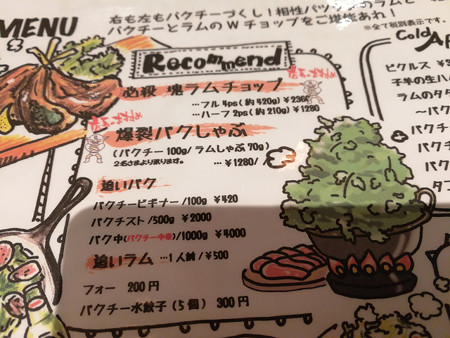 MENU
右も左もパクチーづくし!相性バツ
パクチーとラムのWチョップをご堪能あれ!
※全て税別表示です。
Recommend
必殺 塊ラムチョップ
…フル 4ps(約420g) ¥2360
…ハーフ 2ps(約210g) ¥1280
爆裂パクしゃぶ
(パクチー100g/ラムしゃぶ70g)
2名さまより承ります。
… ¥1280/
追いパク
パクチービギナー/100g ¥420
パクチスト/500g ¥2000
パク中(パクチー中毒)/1000g ¥4000
追いラム …1人前/¥500
フォー 200円
パクチー水餃子(5個) 300円
Cold
ピクルス
子羊の生ハ
ラムのタタ
～パク
パクチ